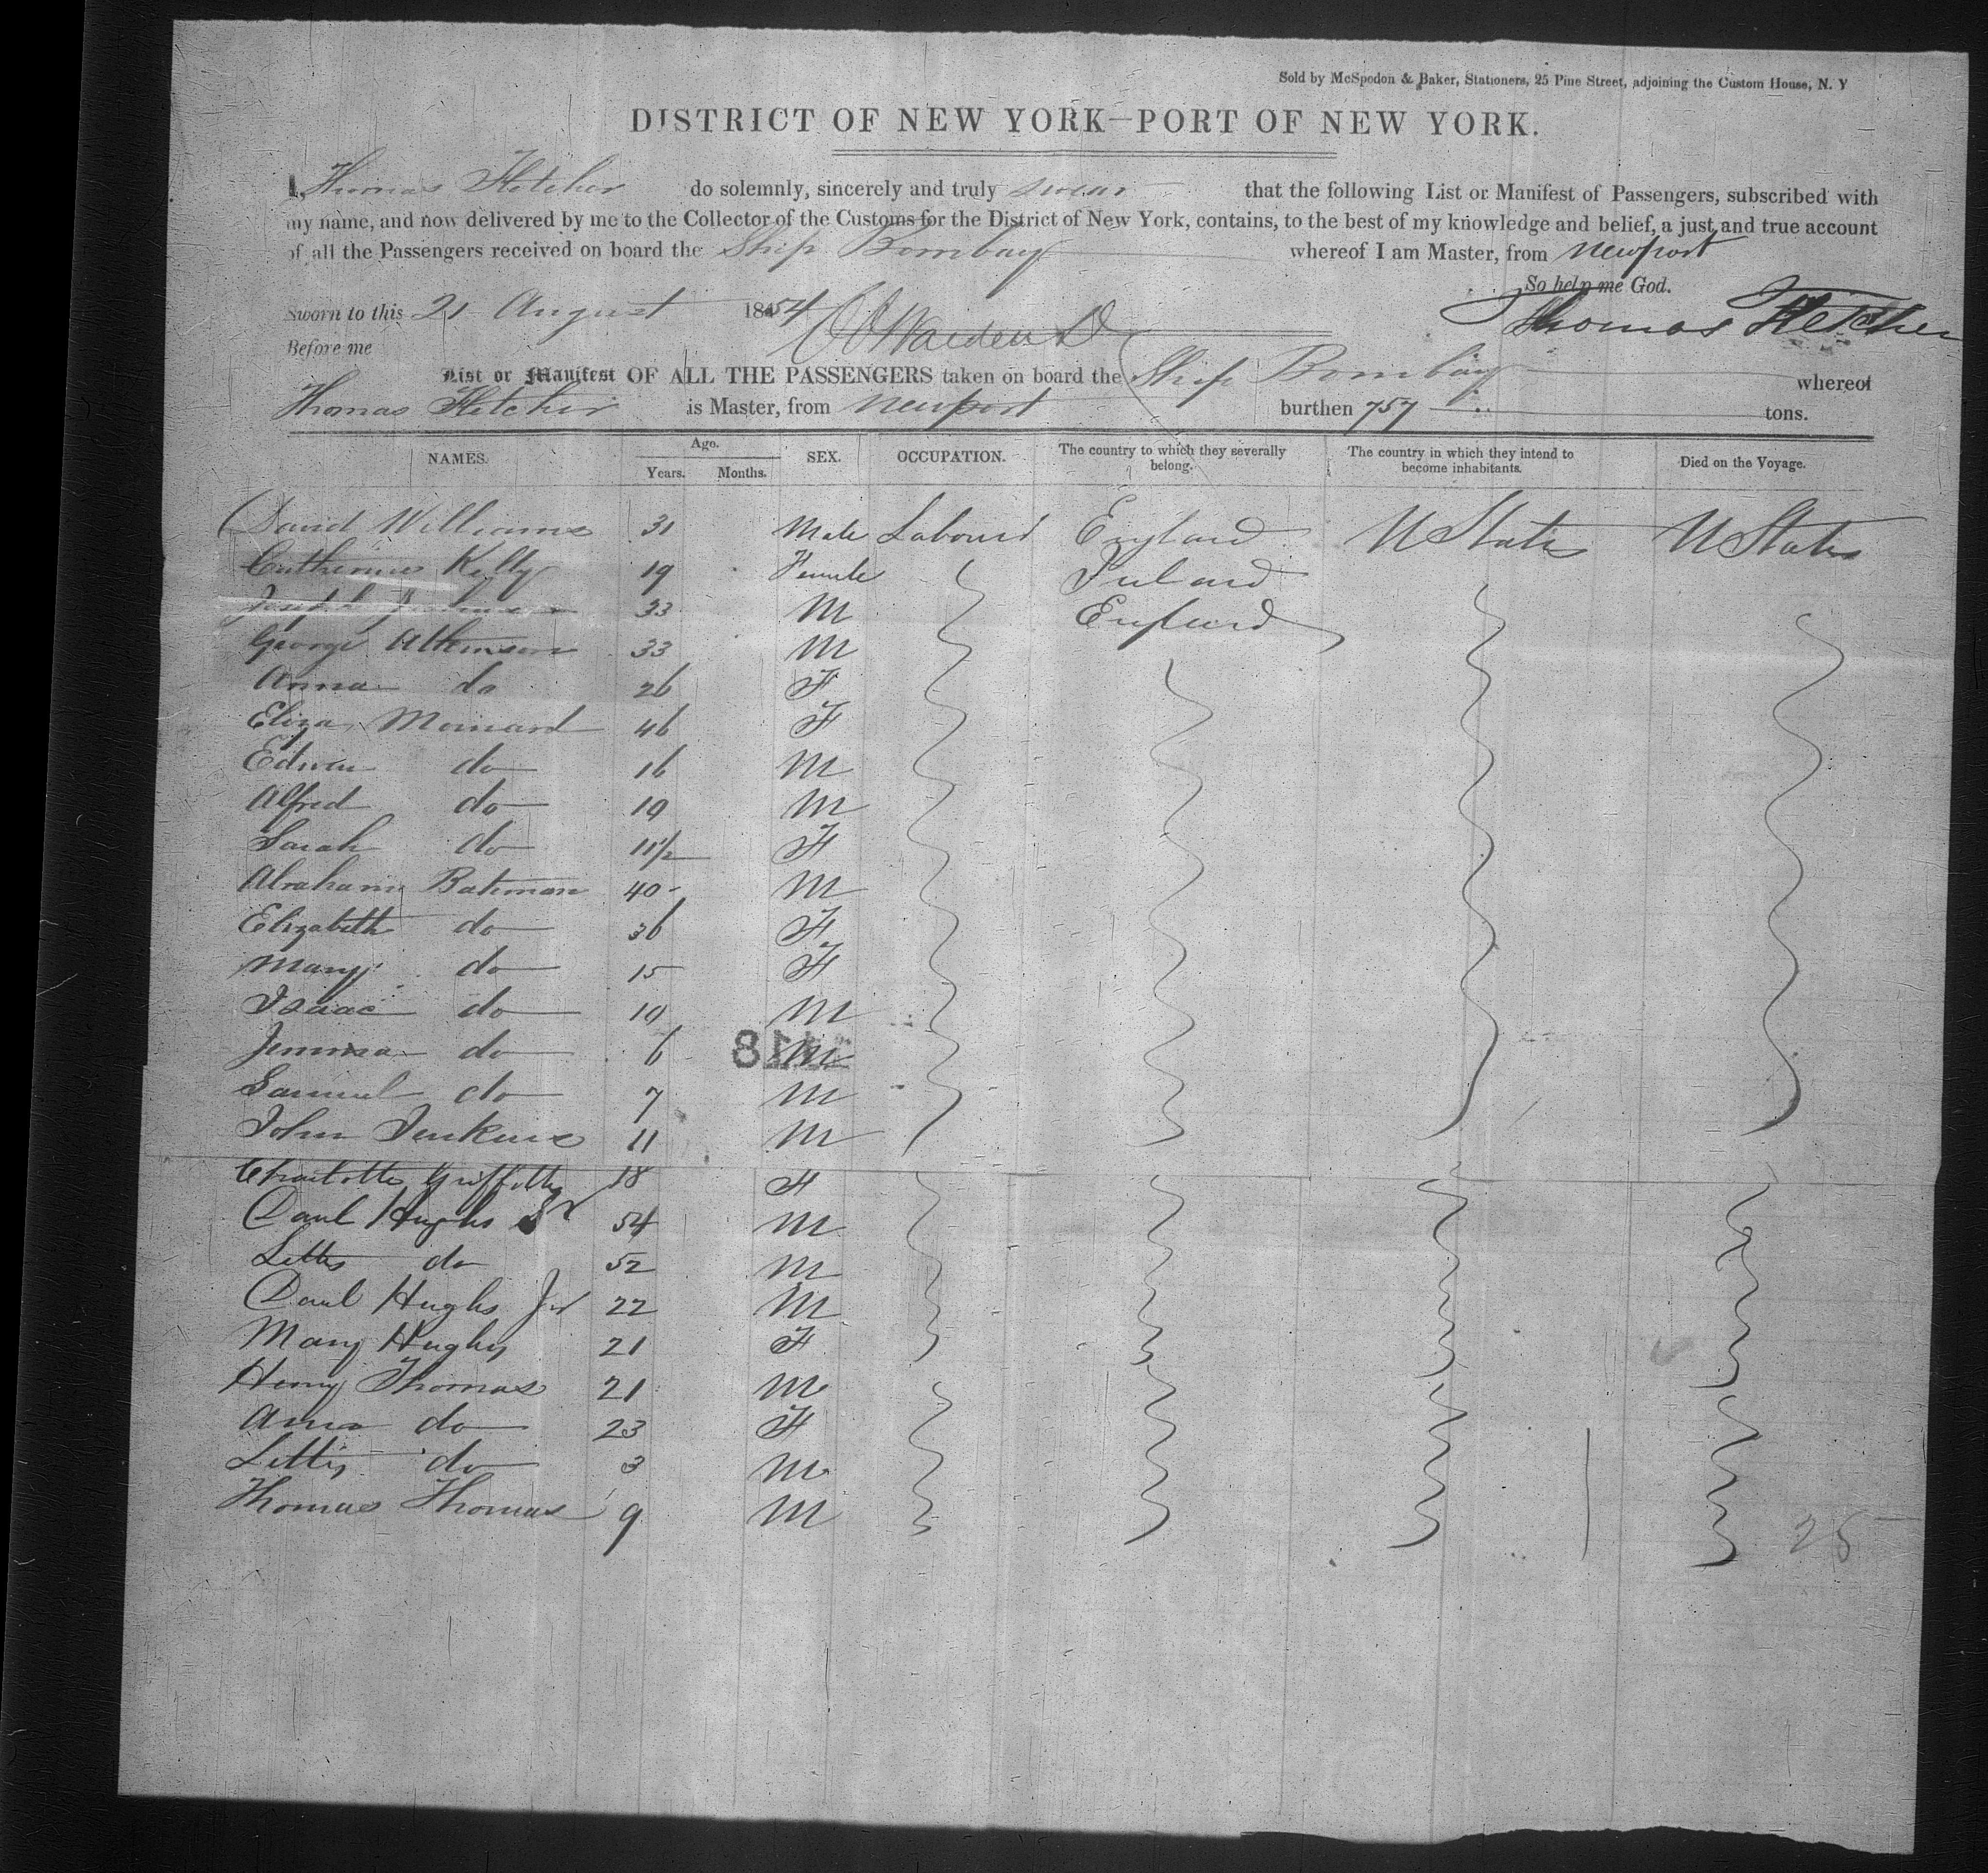 Sold by McSpedon & Baker, Stationers, 25 Pine Street, adjoining the Custom House, N. Y
DISTRICT OF NEW YORK—PORT OF NEW YORK.
I, Thomas Fletcher do solemnly, sincerely and truly swear that the following List or Manifest of Passengers, subscribed with
my name, and now delivered by me to the Collector of the Customs for the District of New York, contains, to the best of my knowledge and belief, a just and true account
of all the Passengers received on board the Ship Bombay whereof I am Master, from Newport
So help me God.
Sworn to this 21 August 1854 Thomas Fletcher
Before me
List or Manifest OF ALL THE PASSENGERS taken on board the Ship Bombay whereof
Thomas Fletcher is Master, from Newport burthen 757 tons.
NAMES. Age. Years. Months. SEX. OCCUPATION. The country to which they severally belong. The country in which they intend to become inhabitants. Died on the Voyage.
David Williams 31 Male Labourer England U States U States
Catherine Kelly 19 Female Ireland
Joseph 33 M England
George Atkinson 33 M
Anna do 26 F
Eliza 46 F
Edwin do 16 M
Alfred do 19 M
Sarah do 11½ F
Abraham Bateman 40 M
Elizabeth do 36 F
Mary do 15 F
Isaac do 10 M
Jemima do 6 M
Samuel do 7 M
John Jenkins 11 M
Charlotte Griffiths 18 F
Danl Hughs Sr 54 M
do 52 M
Danl Hughs Jr 22 M
Mary Hughs 21 F
Henry Thomas 21 M
Ann do 23 F
do 3 M
Thomas Thomas 9 M
25